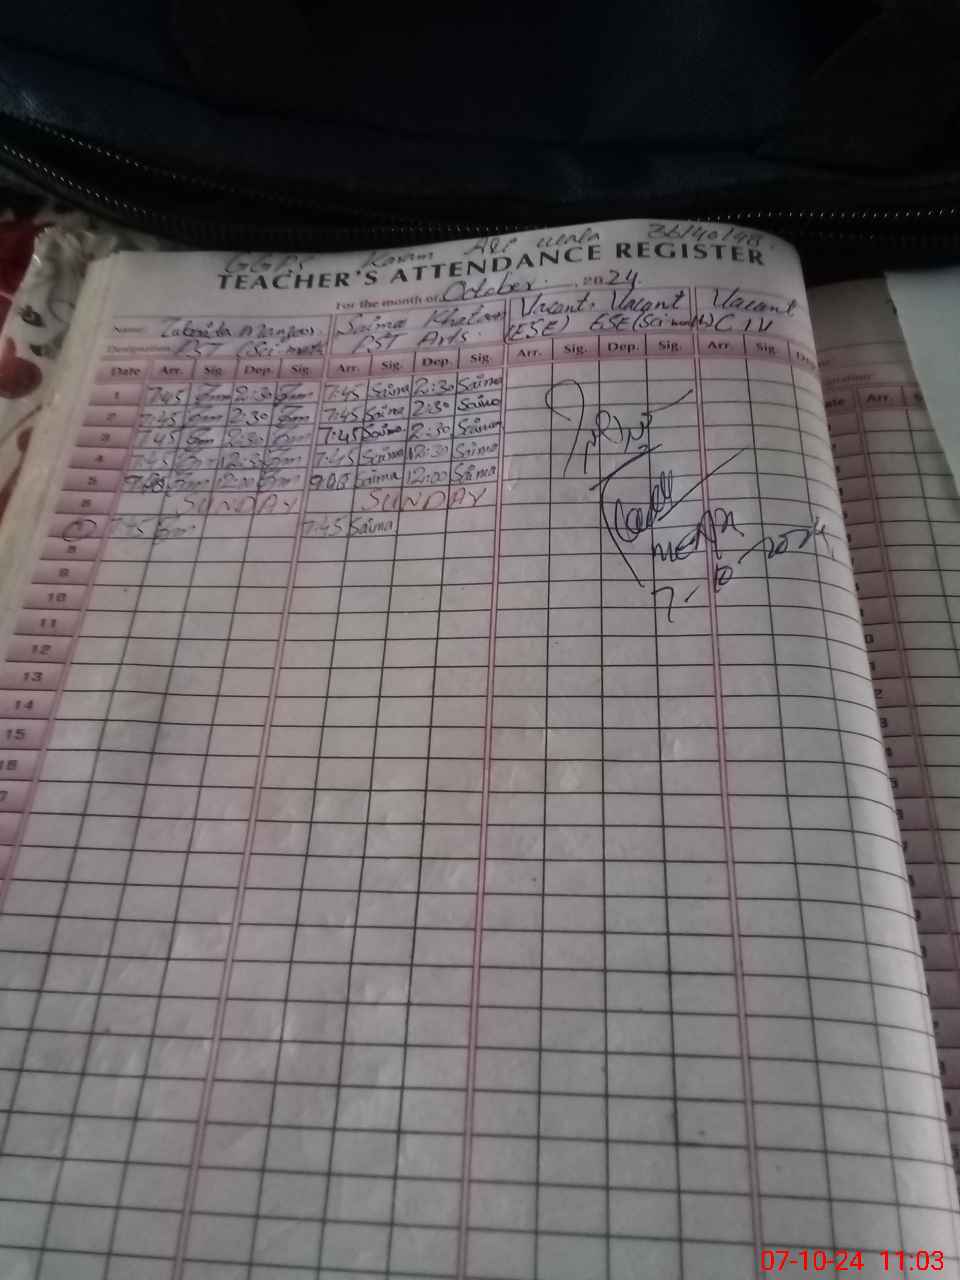 GGPS Karam Ali wala
TEACHER'S ATTENDANCE REGISTER
For the month of October 2024
Name Saima Khatoon Vacant Vacant Vacant
Designation PST (Sci math PST Arts (ESE) ESE (Sci math) C IV
Date Arr. Sig. Dep. Sig. Arr. Sig. Dep. Sig. Arr. Sig. Dep. Sig. Arr. Sig.
1 7:45 2:30 7:45 Saima 2:30 Saima
2 7:45 2:30 7:45 Saima 2:30 Saima
3 7:45 2:30 7:45 Saima 2:30 Saima
4 7:45 12:30 7:45 Saima 12:30 Saima
5 12:00 Saima 12:00 Saima
6 SUNDAY SUNDAY
7 7:45 7:45 Saima
8
9
10
11
12
13
14
15
16
7-10-2024
Arr.
07-10-24 11:03